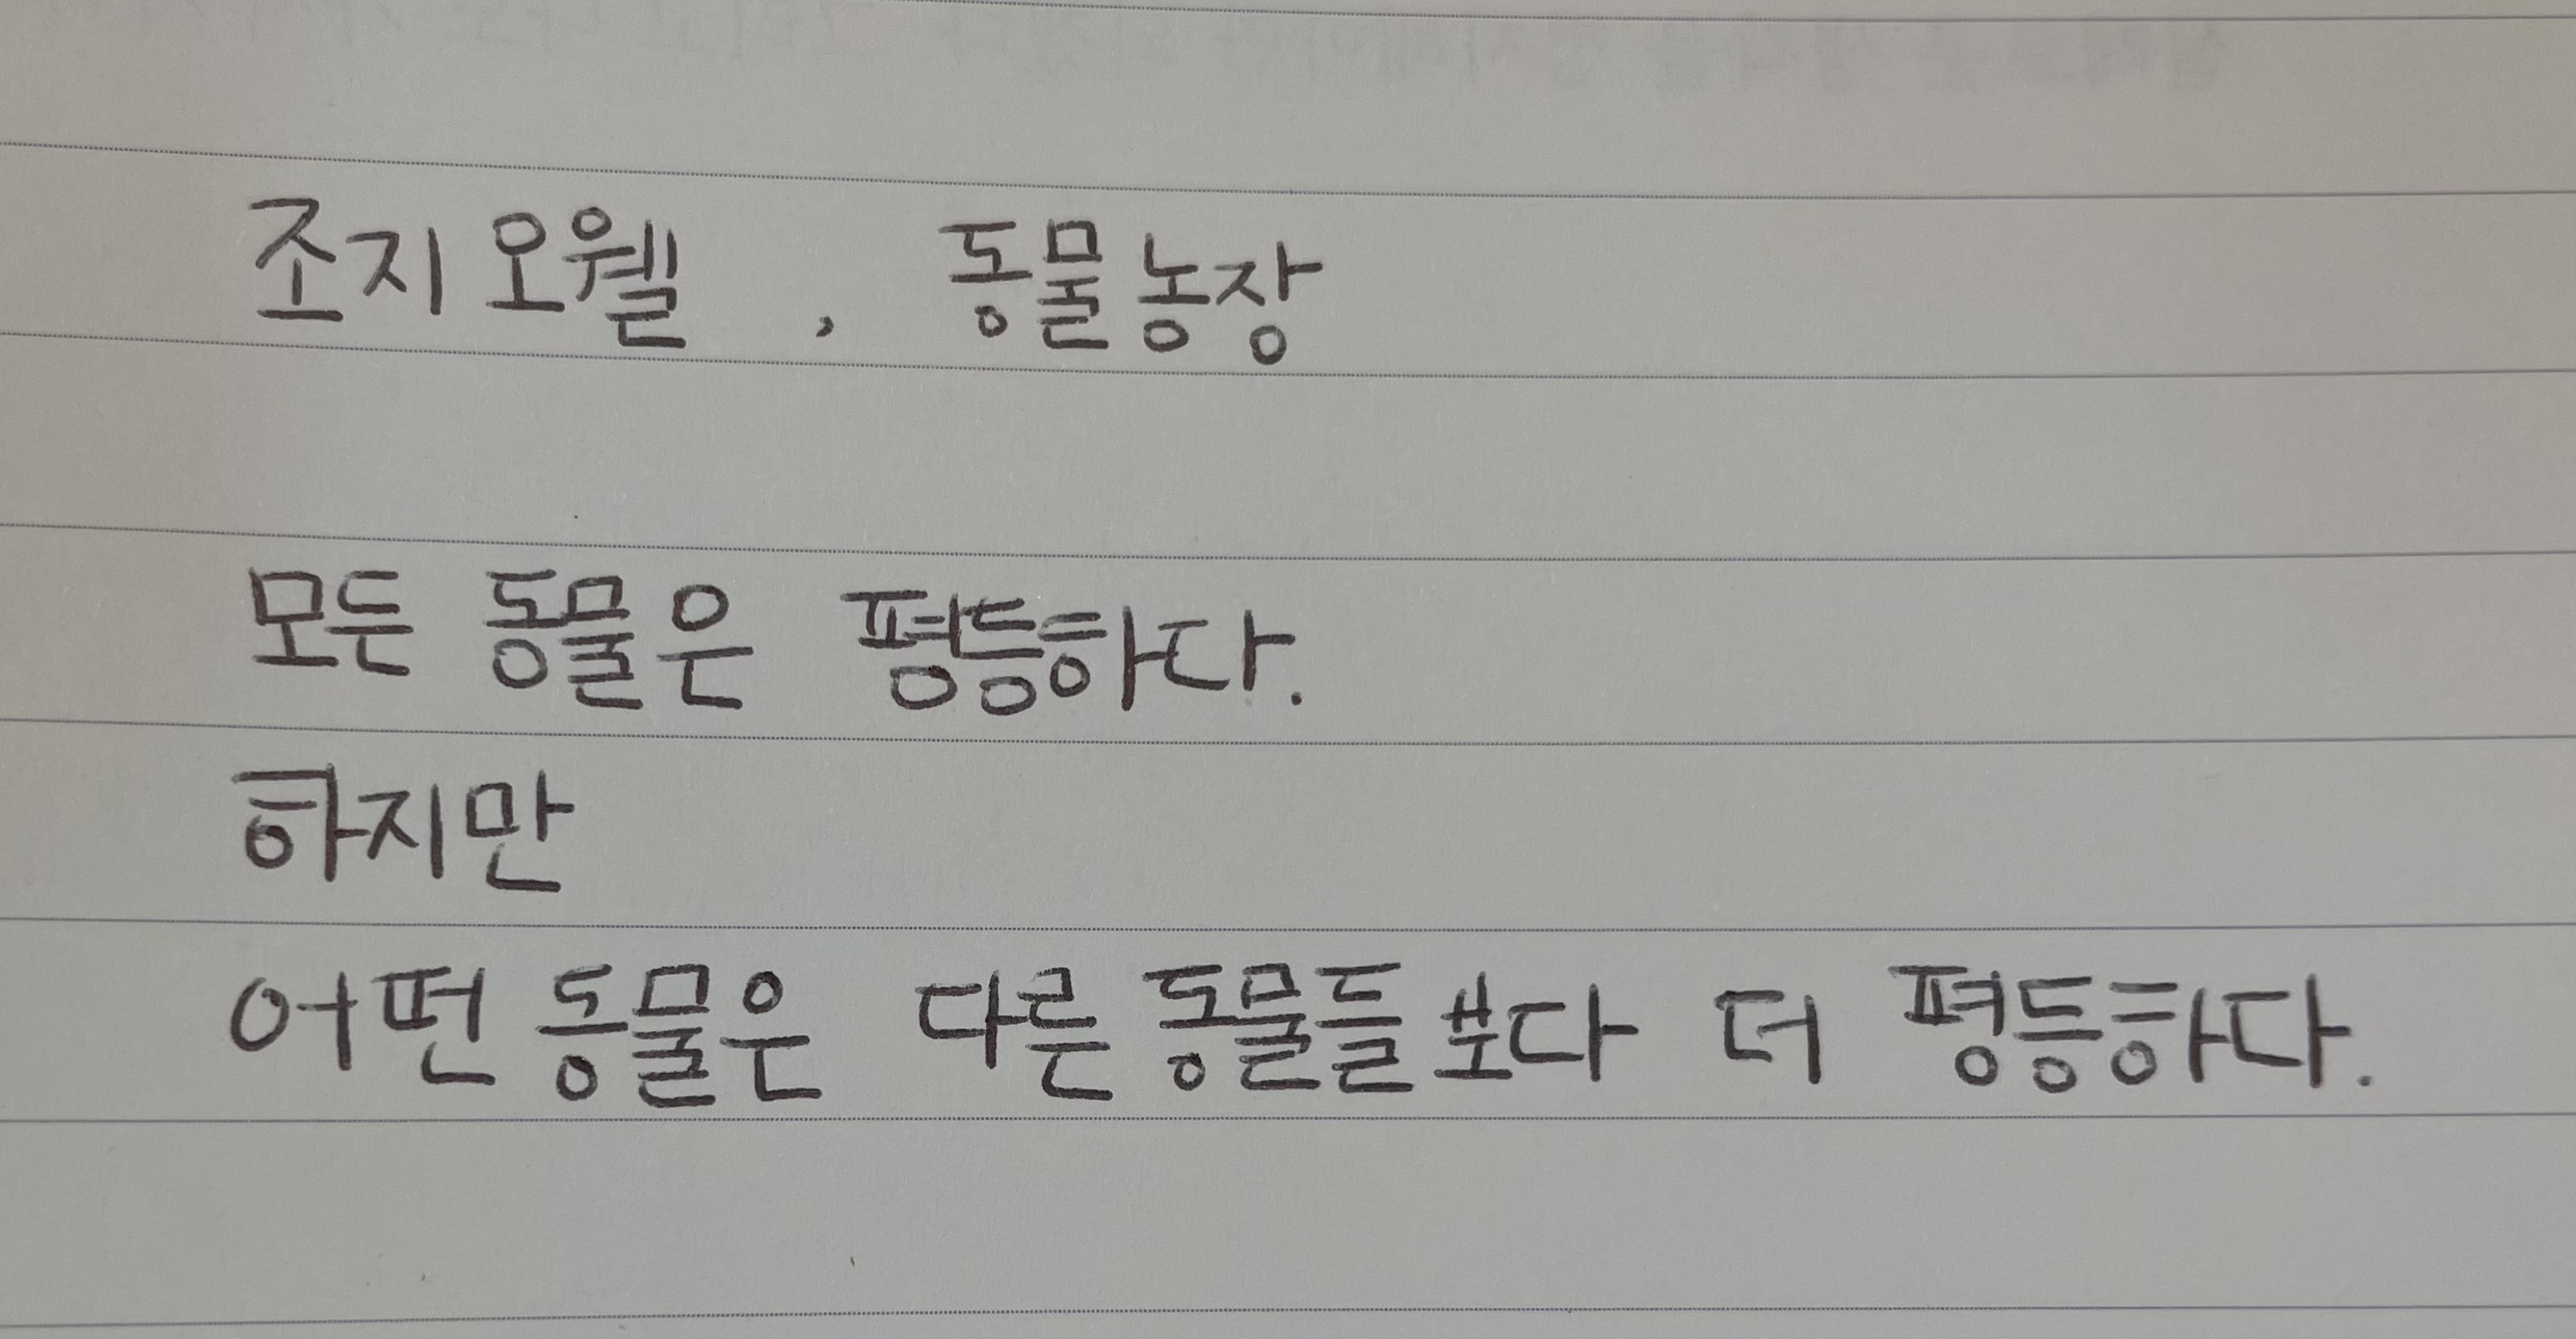 조지 오웰 , 동물 농장
모든 동물은 평등하다.
하지만
어떤 동물은 다른 동물들 보다 더 평등하다.